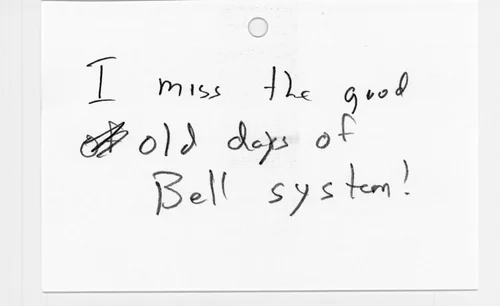 I miss the good
old days of
Bell system!